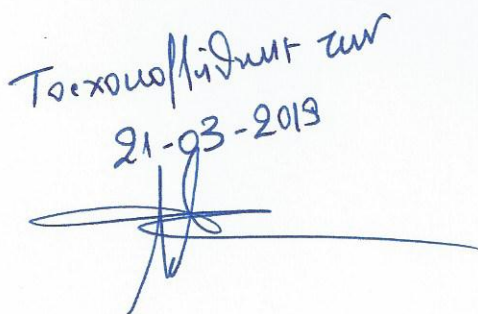 Τοιχοκολλήθηκε την
21-03-2019